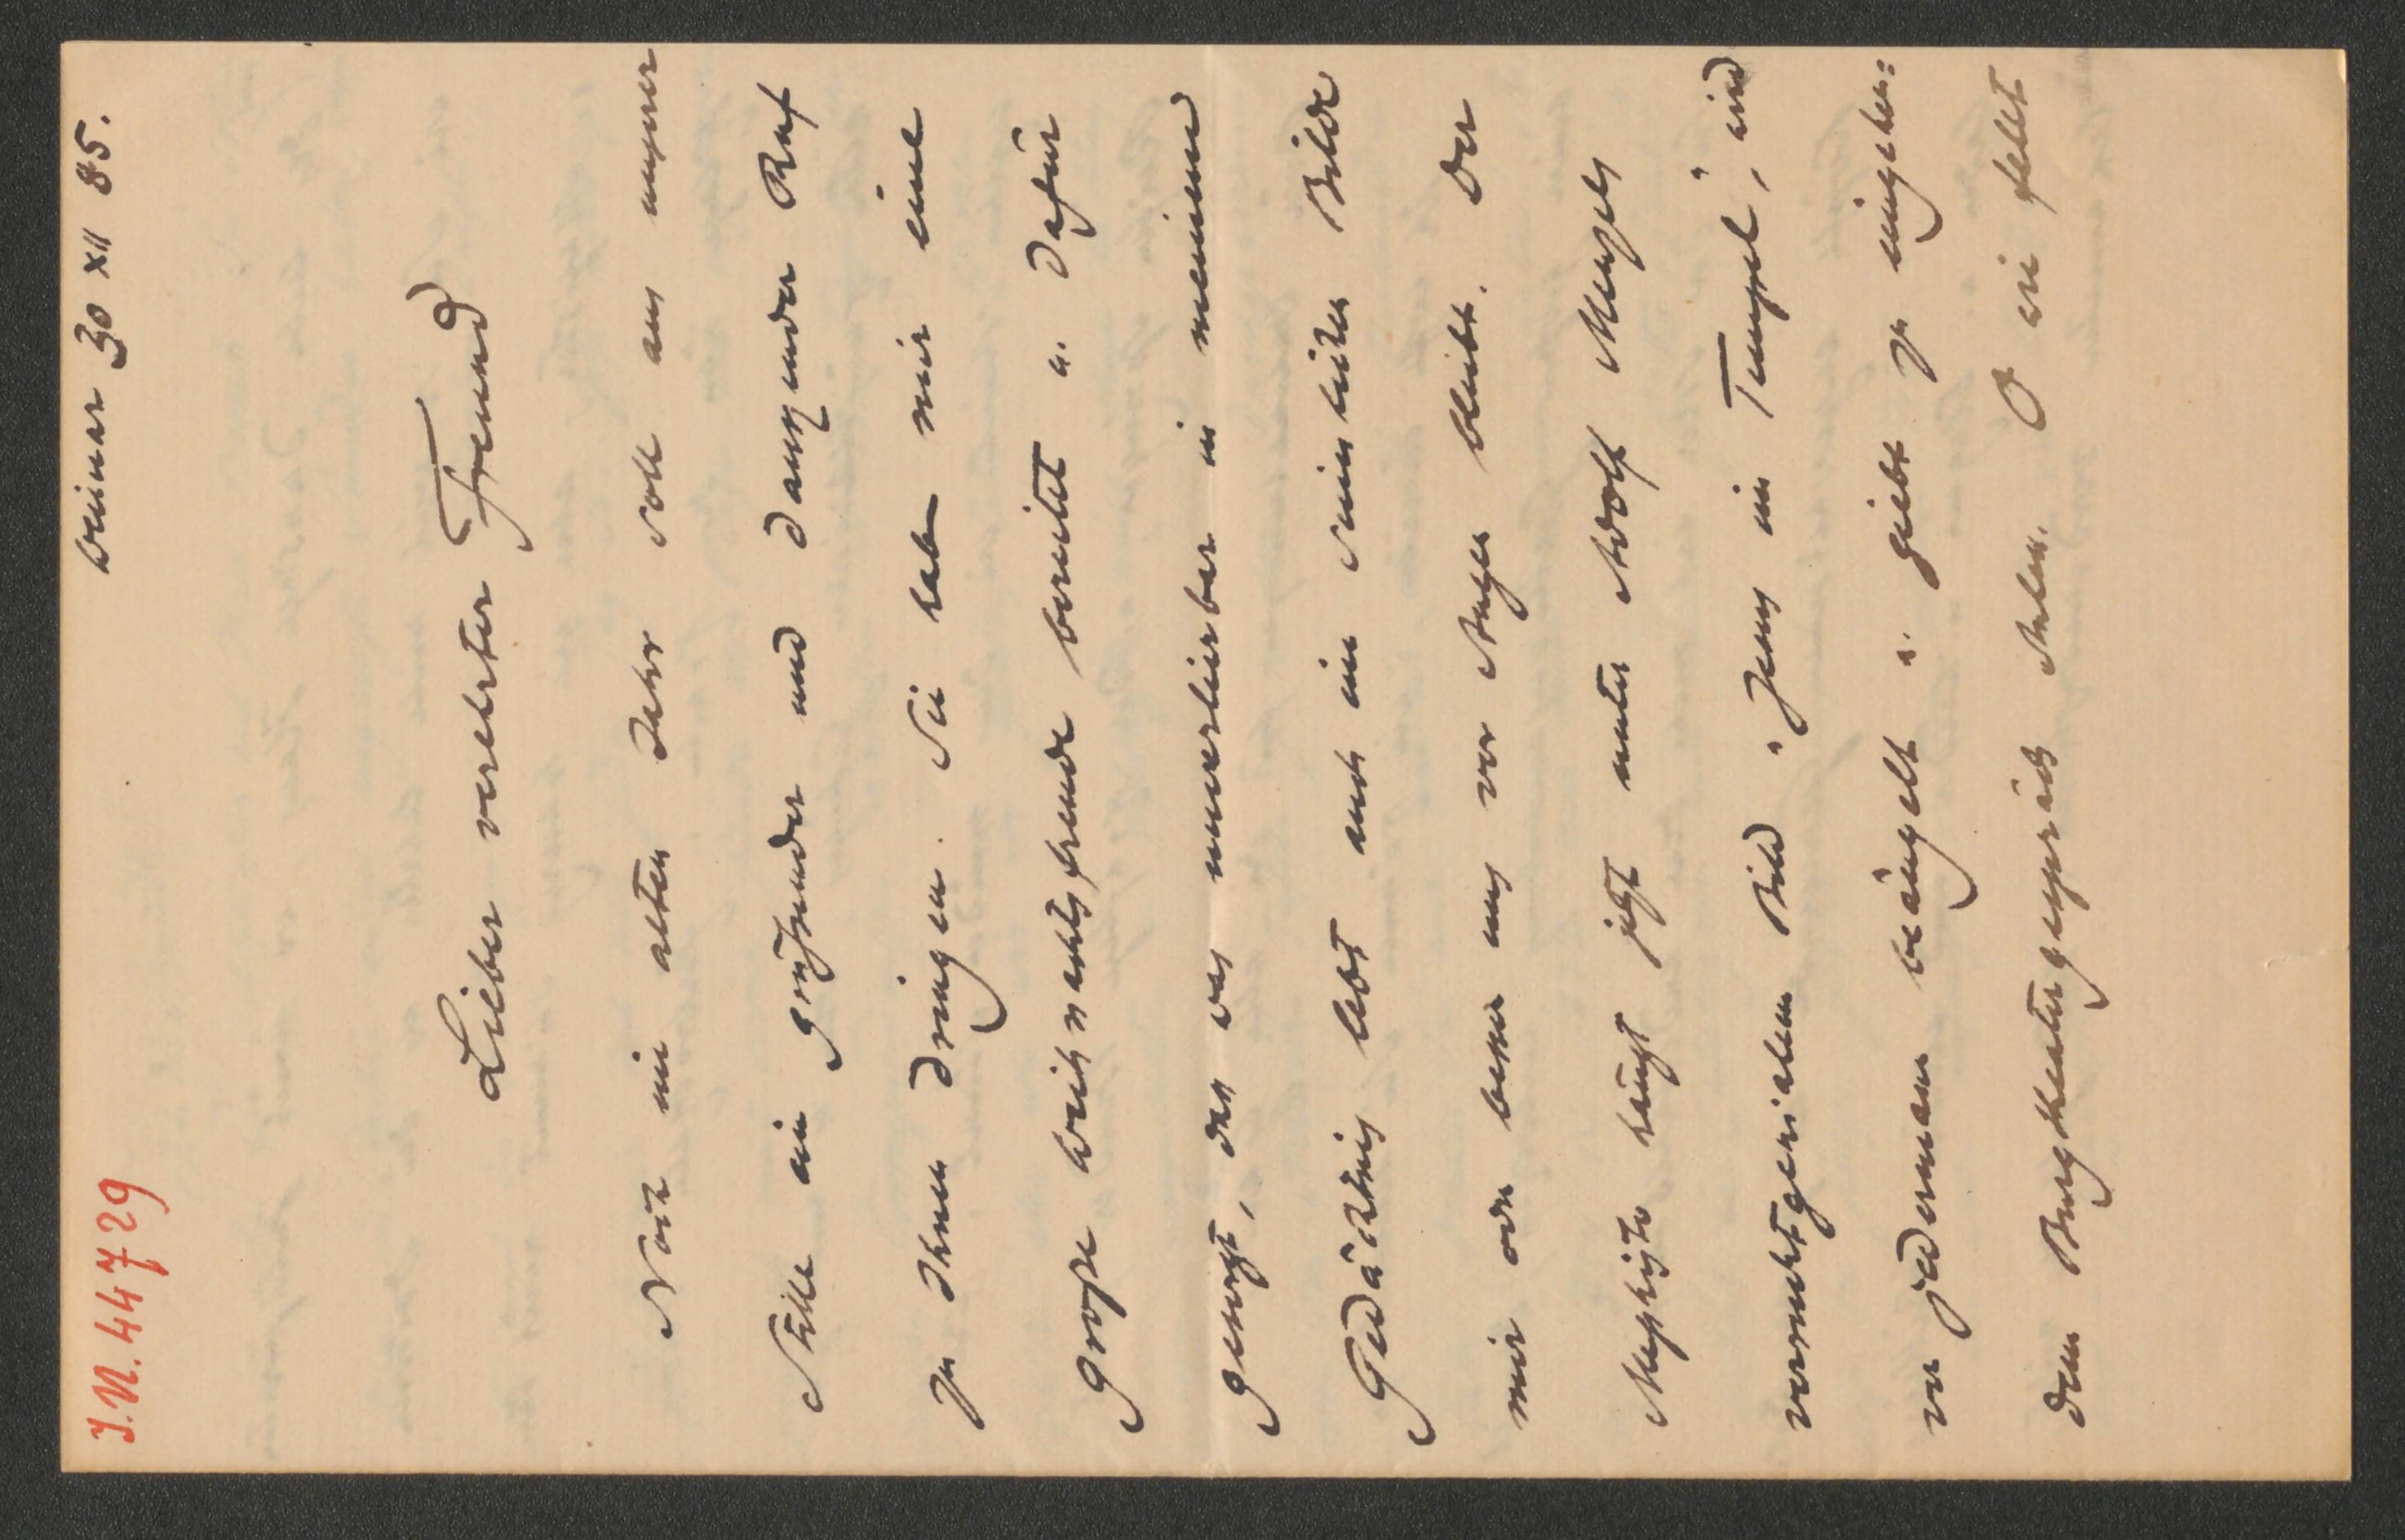 I.N. 44729
Weimar 30 XII 85.
Lieber verehrter Freund
Noch im alten Jahr soll aus unserer
Stille ein grüßender und dankender Ruf
zu Ihnen dringen. Sie haben mir eine
große Weihnachtsfreude bereitet u. dafür
gesorgt, daß was unverlierbar in meinem
Gedächtnis lebt auch im sinnlichen Bilde
mir oder besser uns vor Augen bleibt. Der
Mephisto hängt jetzt unter Adolf Menzels
vernichtgenialem Bild "Jesus im Tempel", wird
von jedermann beäugelt u. giebt zu eingehen=
dem Burgtheatergespräch Anlass. O wie fehlt